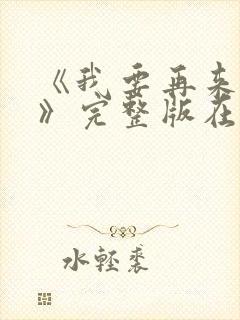 《我要再来
》完整版在
水轻裘